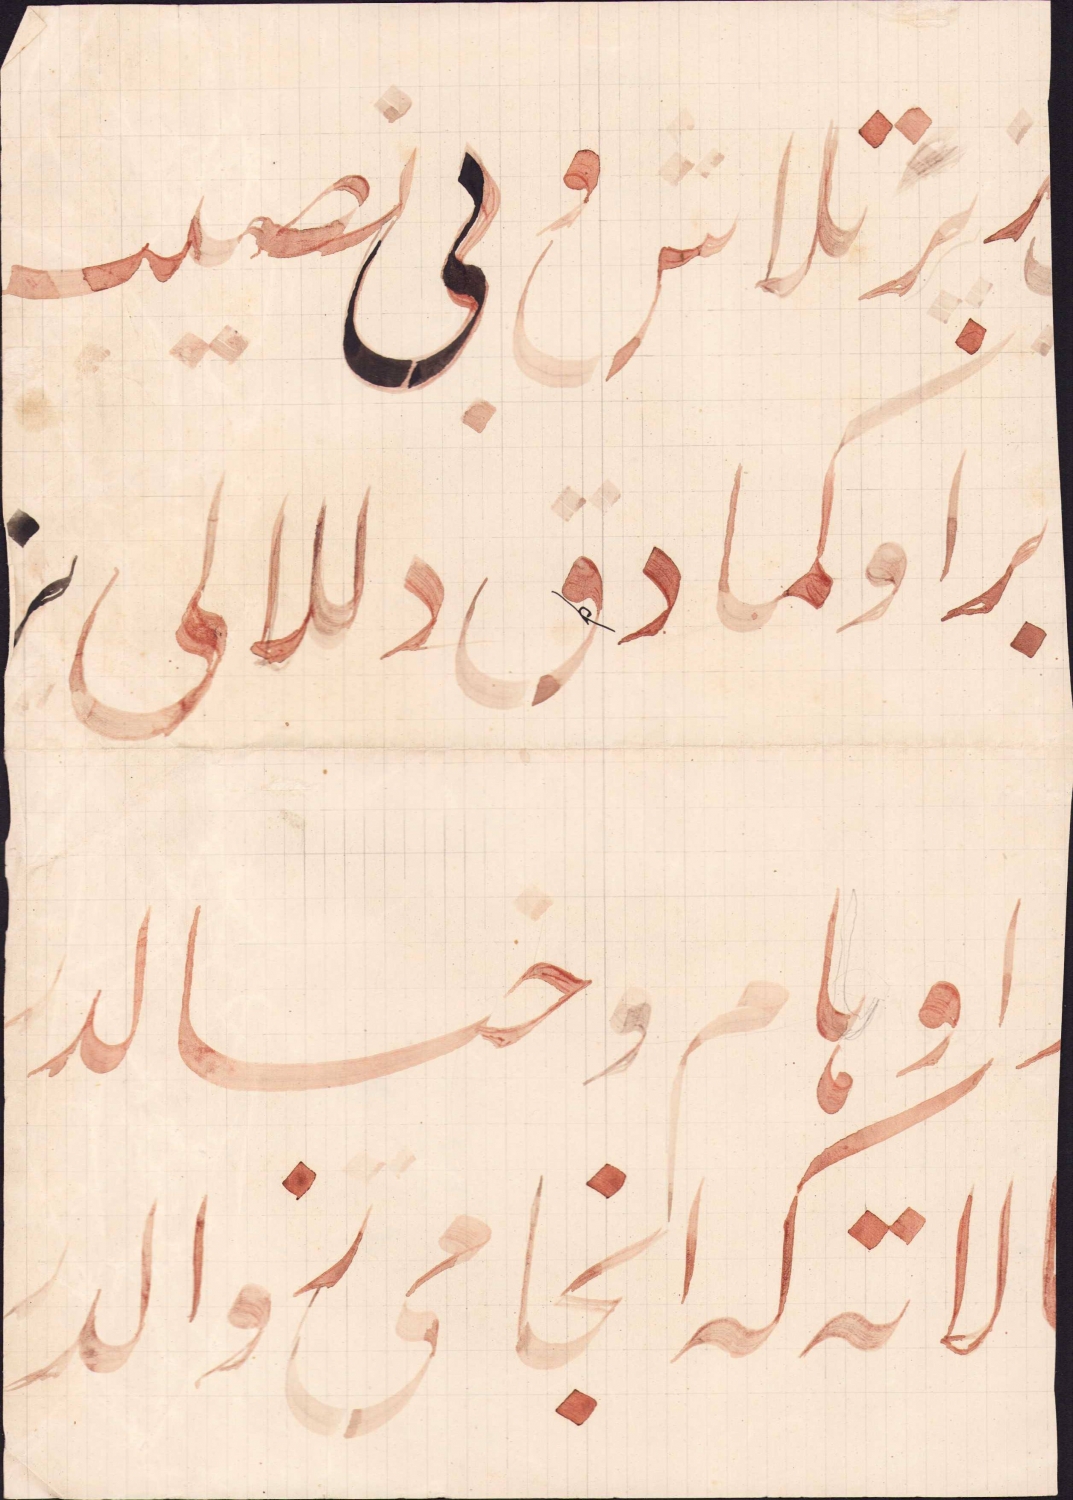 پر تلاش و بی نصیب
بر اوکمادق دللالی
اوهام و خیالدر
الاته که انجامی زوالدر